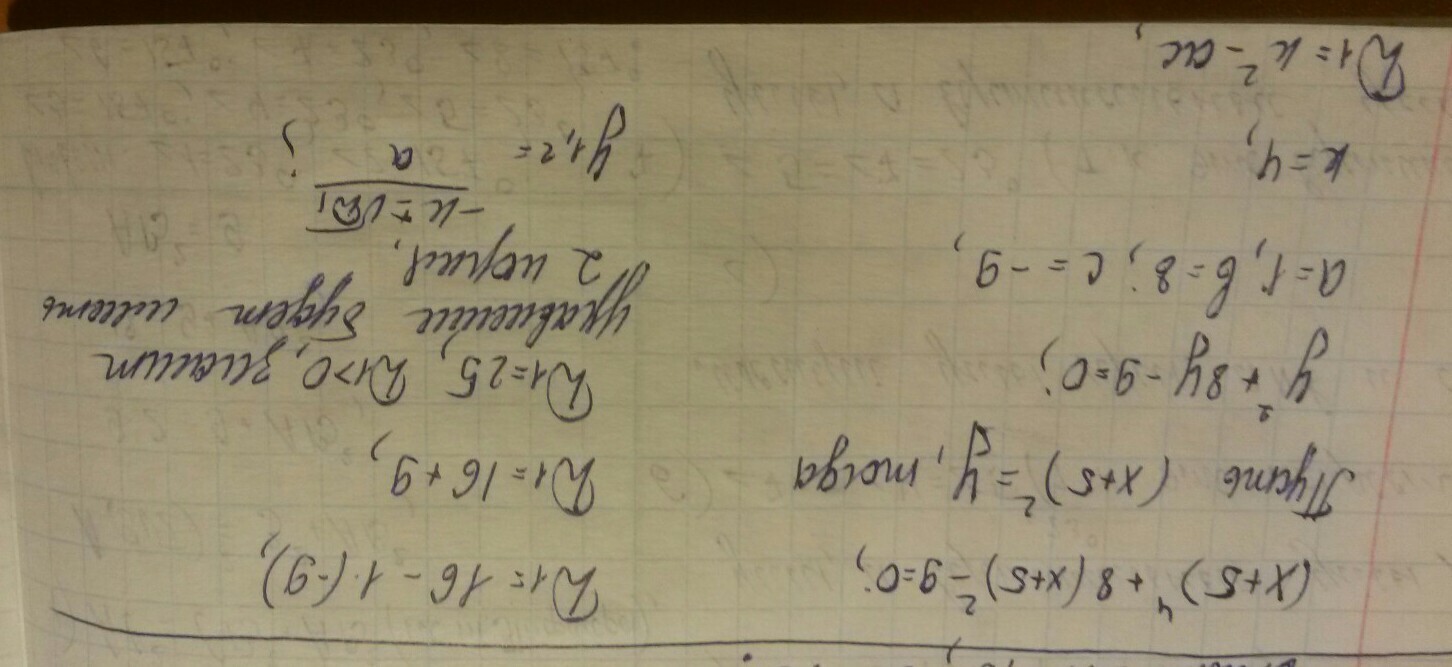 (x+5)⁴ + 8(x+5)² - 9=0;
Пусть (x+5)² = y, тогда
y² + 8y - 9=0;
a=1, b=8; c= -9,
k=4,
D1 = k² - ac,
D1= 16 - 1·(-9),
D1= 16+9,
D1=25, D1>0, значит
уравнение будет иметь
2 корня,
y1,2= (-k±√D1)/a ;